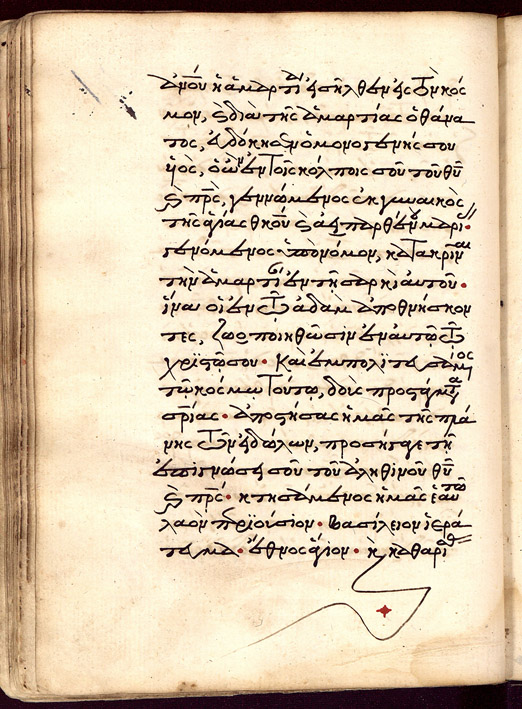 ἀνου ἡ ἁμαρτία εἰσῆλθεν εἰς τὸν κόσ
μον, καὶ διὰ τῆς ἁμαρτίας ὁ θάνα
τος, εὐδόκησεν ὁ μονογενής σου
υἱός, ὁ ὢν ἐν τοῖς κόλποις σοῦ τοῦ θῦ
καὶ πρς, γεννώμενος ἐκ γυναικὸς
τῆς ἁγίας θκου καὶ ἀειπαρθένου μαρί·
γενόμενος ὑπὸ νόμον, κατακρῖναι
τὴν ἁμαρτίαν ἐν τῇ σαρκὶ αὐτοῦ·
ἵνα οἱ ἐν τῷ ἀδὰμ ἀποθνήσκον
τες, ζωοποιηθῶσιν ἐν αὐτῷ τῷ
χριστῷ σου· Καὶ ἐμπολιτευσάμενος
τῷ κόσμω τούτω, δοὺς προστάγματα
σρίας· ἀποστήσας ἡμᾶς τῆς πλά
νης τῶν εἰδώλων, προσήγαγε τῇ
ἐπιγνώσει σοῦ τοῦ ἀληθινοῦ θῦ
καὶ πρς· κτησάμενος ἡμᾶς ἑαυτῷ
λαὸν περιούσιον· βασίλειον ἱερά
τευμα· ἔθνος ἅγιον· κ καθαρί